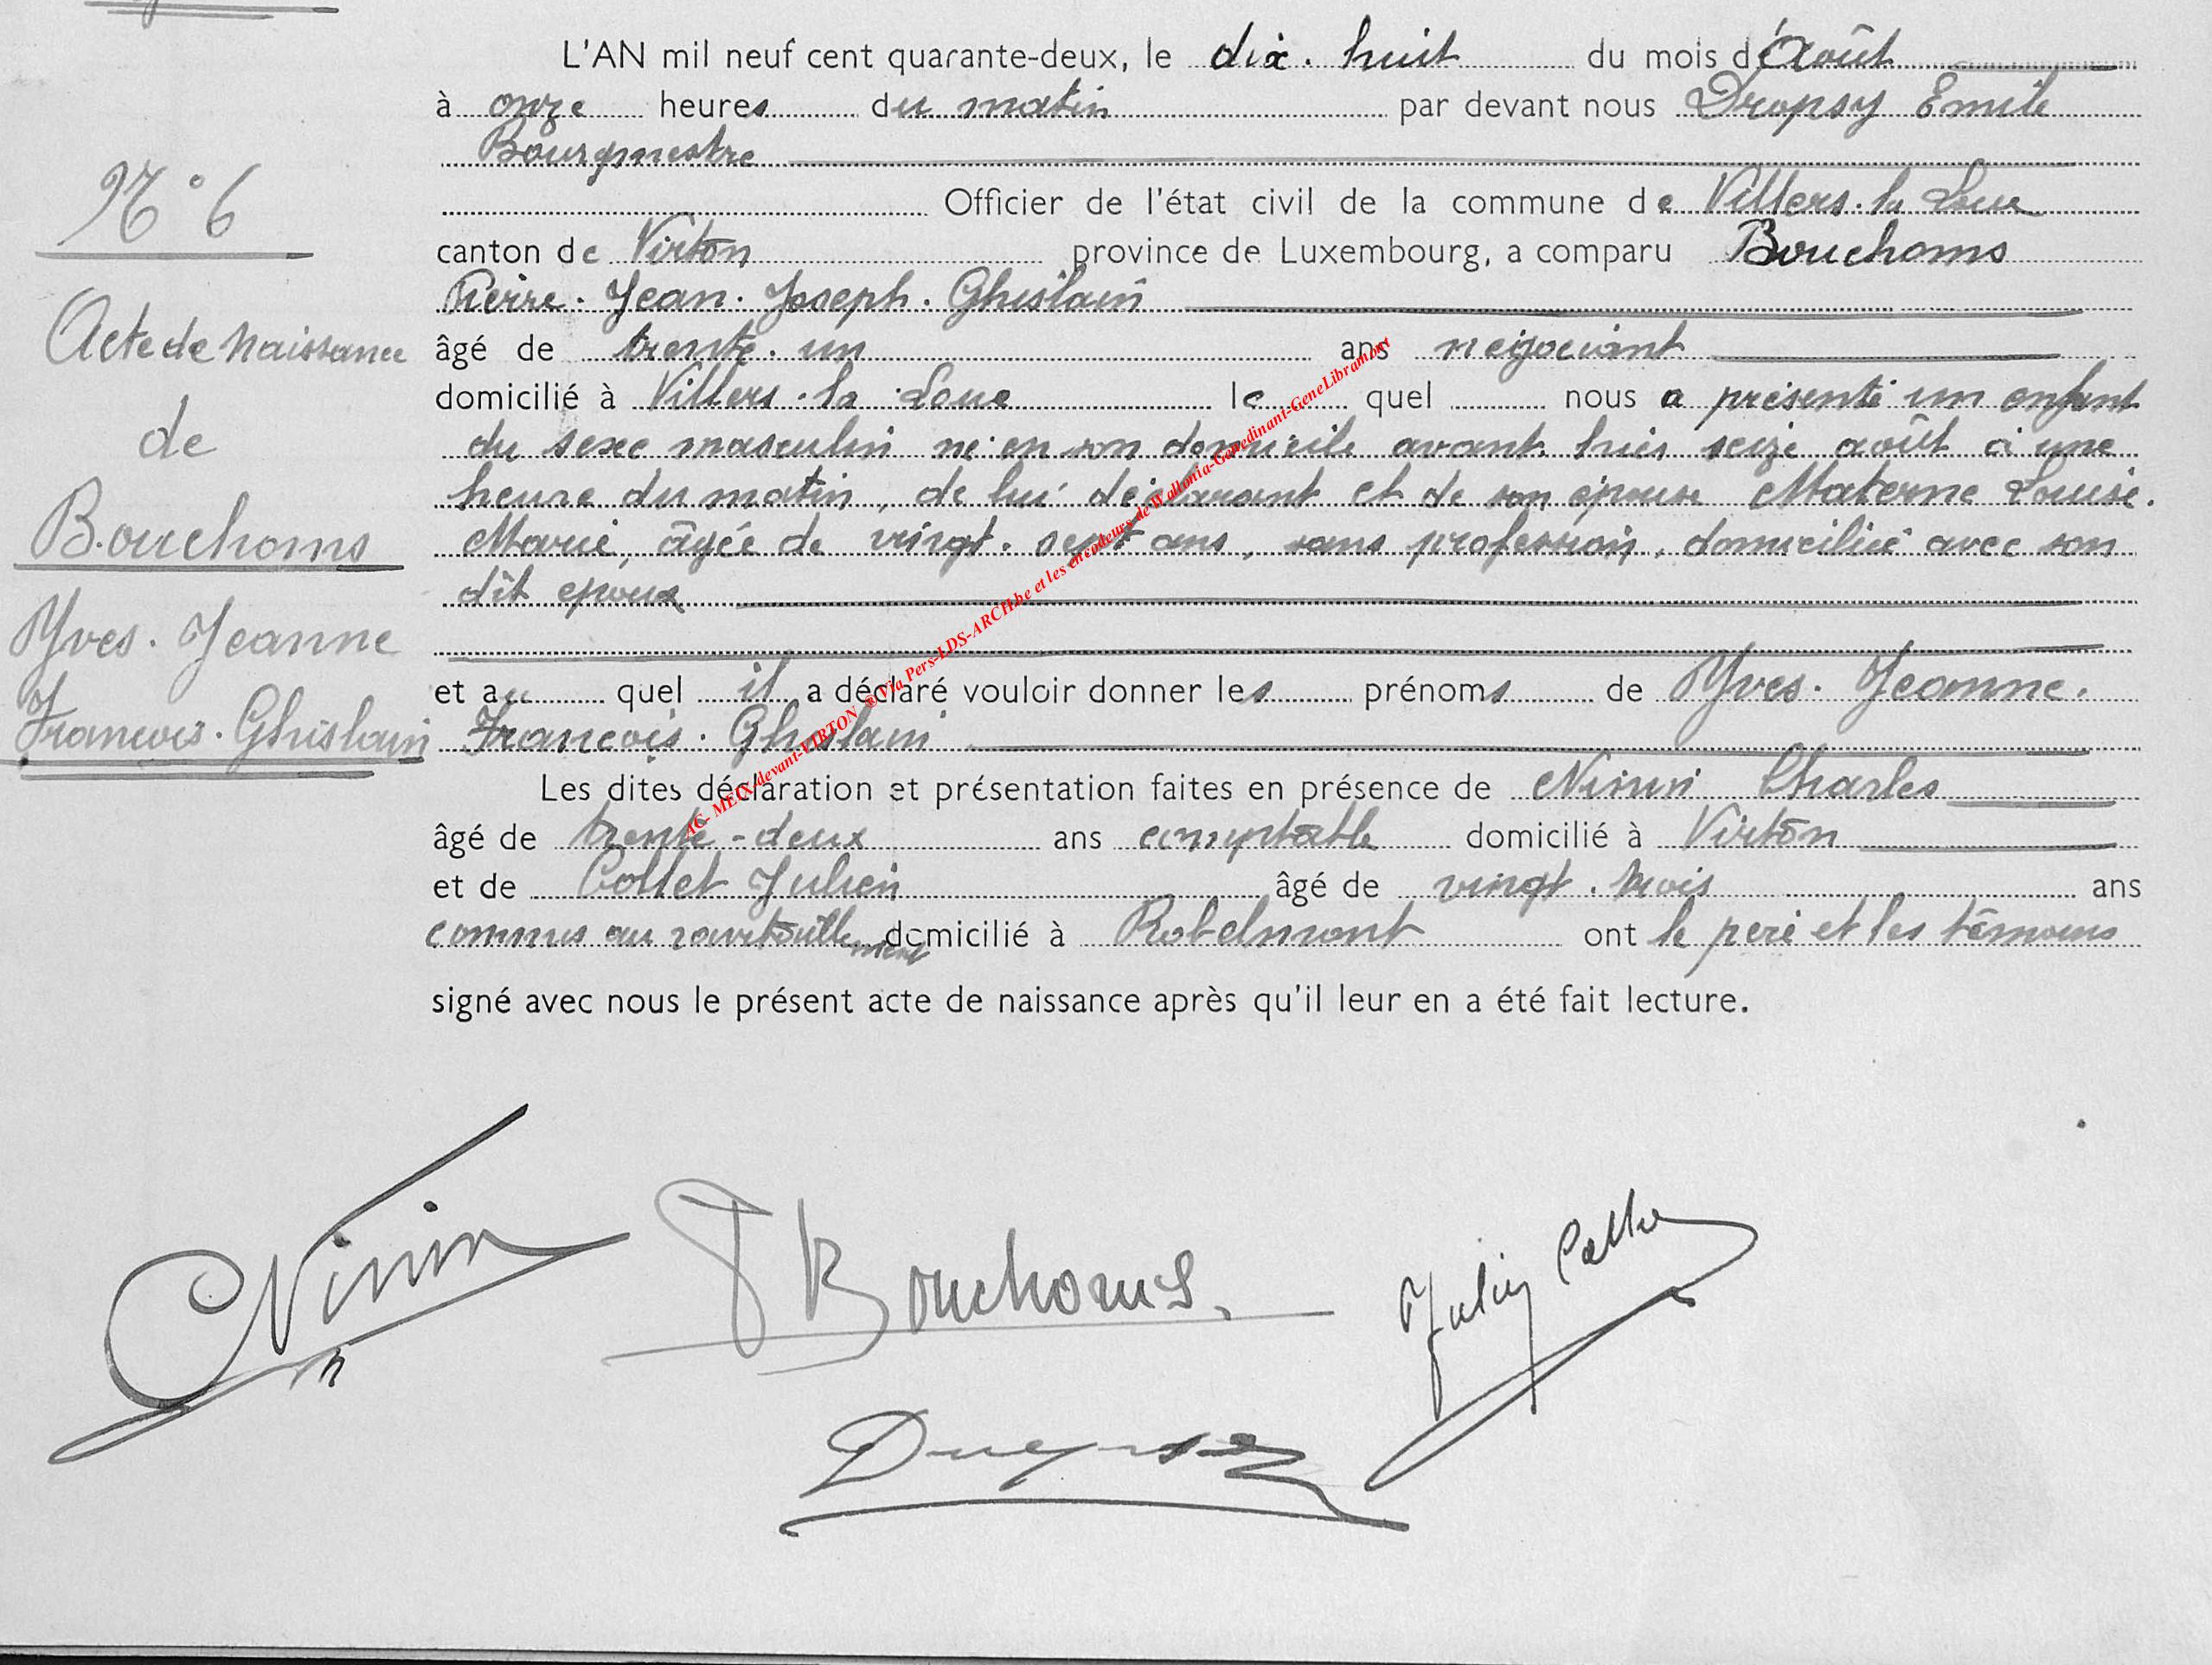 L'AN mil neuf cent quarante-deux, le dix-huit du mois d'Août
à onze heures du matin par devant nous Dropsy Emile
Bourgmestre
N° 6
Officier de l'état civil de la commune de Villers-la-Loue
canton de Virton province de Luxembourg, a comparu Bouchoms
Pierre-Jean-Joseph-Ghislain
Acte de Naissance
âgé de trente-un ans négociant
domicilié à Villers-la-Loue le quel nous a présenté un enfant
de
du sexe masculin né en son domicile avant hier seize août à une
heure du matin, de lui déclarant et de son épouse Materne Louise-
Bouchoms
Marie, âgée de vingt-sept ans, sans profession, domicilié avec son
dit époux
Yves-Jeanne
et au quel il a déclaré vouloir donner les prénoms de Yves-Jeanne-
Francois-Ghislain
Francois-Ghislain
Les dites déclaration et présentation faites en présence de Ninin Charles
âgé de trente-deux ans comptable domicilié à Virton
et de Collet Julien âgé de vingt-trois ans
commis au ravitaillement domicilié à Robelmont ont le père et les témoins
signé avec nous le présent acte de naissance après qu'il leur en a été fait lecture.
AC- MEIX-devant-VIRTON ® Via Pers-LDS-ARCH.be et les encodeurs de Wallonia-Genedinant-GeneLibramont
CNinin
P Bouchoms.
Julien Collet
Dropsy